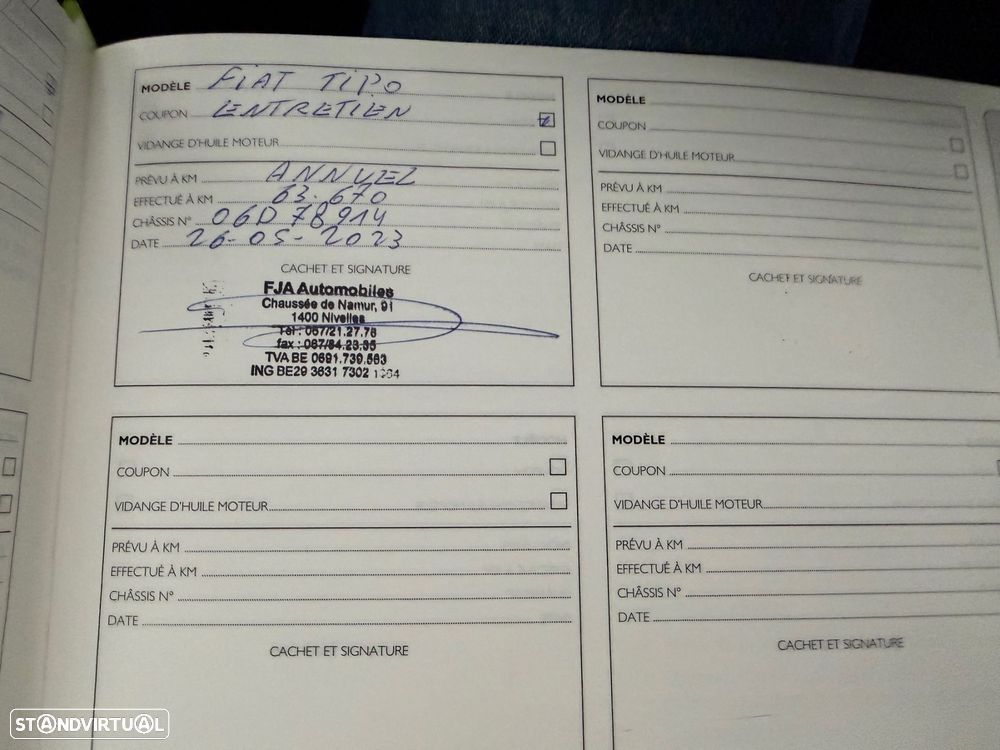 MODÈLE FIAT TIPO
COUPON ENTRETIEN
VIDANGE D'HUILE MOTEUR
PRÉVU À KM ANNUEL
EFFECTUÉ À KM 63.670
CHÂSSIS N° 06D78914
DATE 26-05-2023
CACHET ET SIGNATURE
FJA Automobiles
Chaussée de Namur, 91
1400 Nivelles
Tél : 067/21.27.78
fax : 067/84.23.35
TVA BE 0691.739.563
ING BE29 3631 7302
MODÈLE
COUPON
VIDANGE D'HUILE MOTEUR
PRÉVU À KM
EFFECTUÉ À KM
CHÂSSIS N°
DATE
CACHET ET SIGNATURE
MODÈLE
COUPON
VIDANGE D'HUILE MOTEUR
PRÉVU À KM
EFFECTUÉ À KM
CHÂSSIS N°
DATE
CACHET ET SIGNATURE
MODÈLE
COUPON
VIDANGE D'HUILE MOTEUR
PRÉVU À KM
EFFECTUÉ À KM
CHÂSSIS N°
DATE
CACHET ET SIGNATURE
STANDVIRTUAL